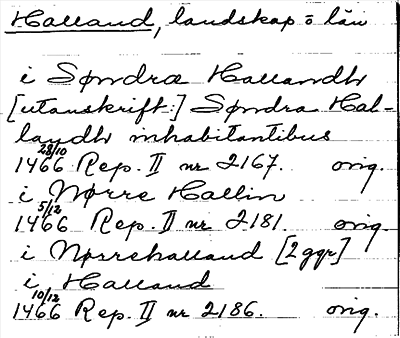 Halland, landskap o län
i Søndra Hallandh
[utanskrift:] Søndra Hal-
laydh inhabitantibus
28/10
1466 Rep. II nr 2167. orig.
i Nørre Hallin
5/12
1466 Rep. II nr 2181. orig.
i Nørrehalland [2 ggr]
i Halland
10/12
1466 Rep. II nr 2186. orig.